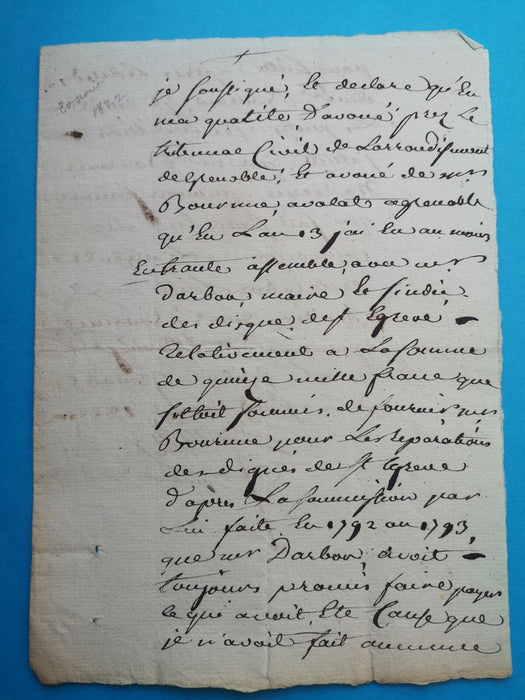 je soussigné, et declare qu'En
ma qualité d'avoué, prez Le
tribunal Civil de Larrondissment
de Grenoble, Et avoué de mr
Bournne avolat a grenoble
qu'En L'an 13 j'ai Eu au moins
En trante assemblé, avec mr
Darbon, maire Et sindic
des digue de st Egreve
relativement a La somme
de quinze mille franc que
s'etoit soumis, de fournir mr
Bournne pour Les reparations
des digues de st Egreve
d'après La soumission par
Lui faite En 1792 ou 1793,
que mr Darbon, avoit
toujours promis faire payer
ce qui avoit Eté Cause que
je n'avoit fait aucunne